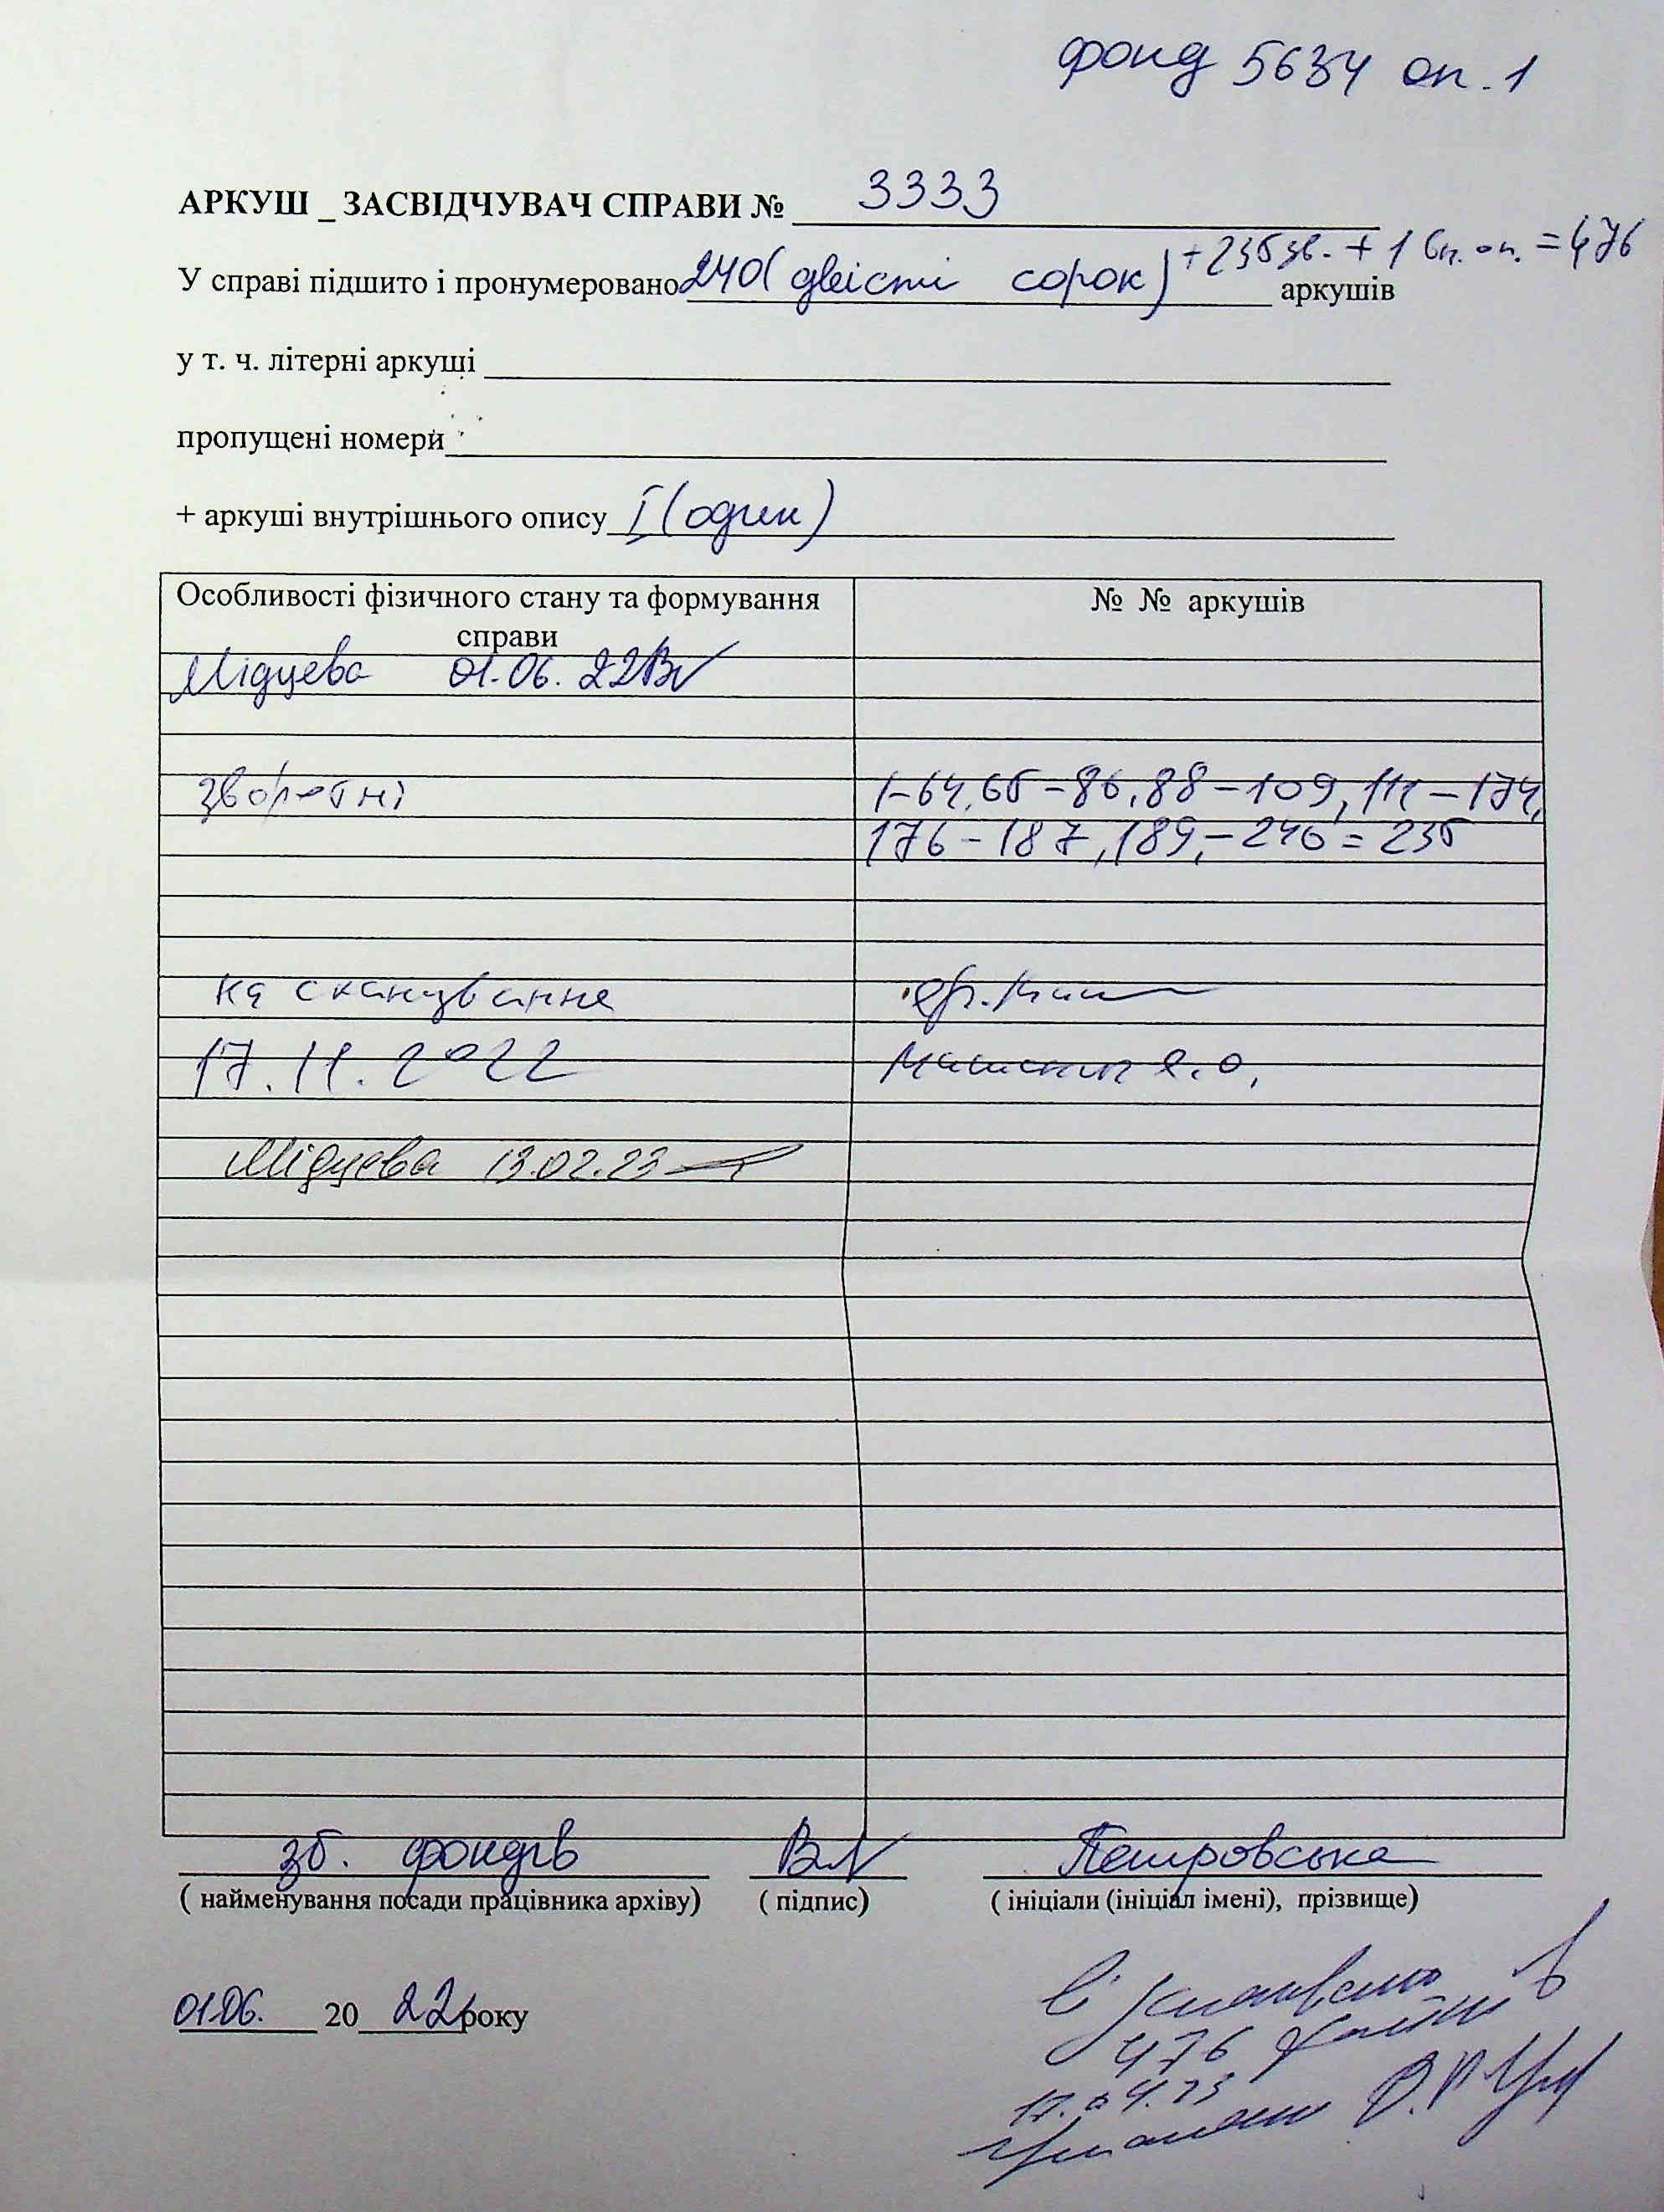 фонд 5634 оп. 1
АРКУШ _ ЗАСВІДЧУВАЧ СПРАВИ № 3333
У справі підшито і пронумеровано 240 (двісті сорок) + 235 зв. + 1 вн. оп. = 476 аркушів
у т. ч. літерні аркуші
пропущені номери
+ аркуші внутрішнього опису I (один)
Особливості фізичного стану та формування справи
№ № аркушів
Мідцева 01.06.22
зворотні
1-64, 65-86, 88-109, 111-174,
176-187, 189,-240 = 235
на сканування
17.11.2022
Мідцева 13.02.23
зб. фондів
Петровська
( найменування посади працівника архіву) ( підпис) ( ініціали (ініціал імені), прізвище)
01.06. 20 22 року
476
17.04.23